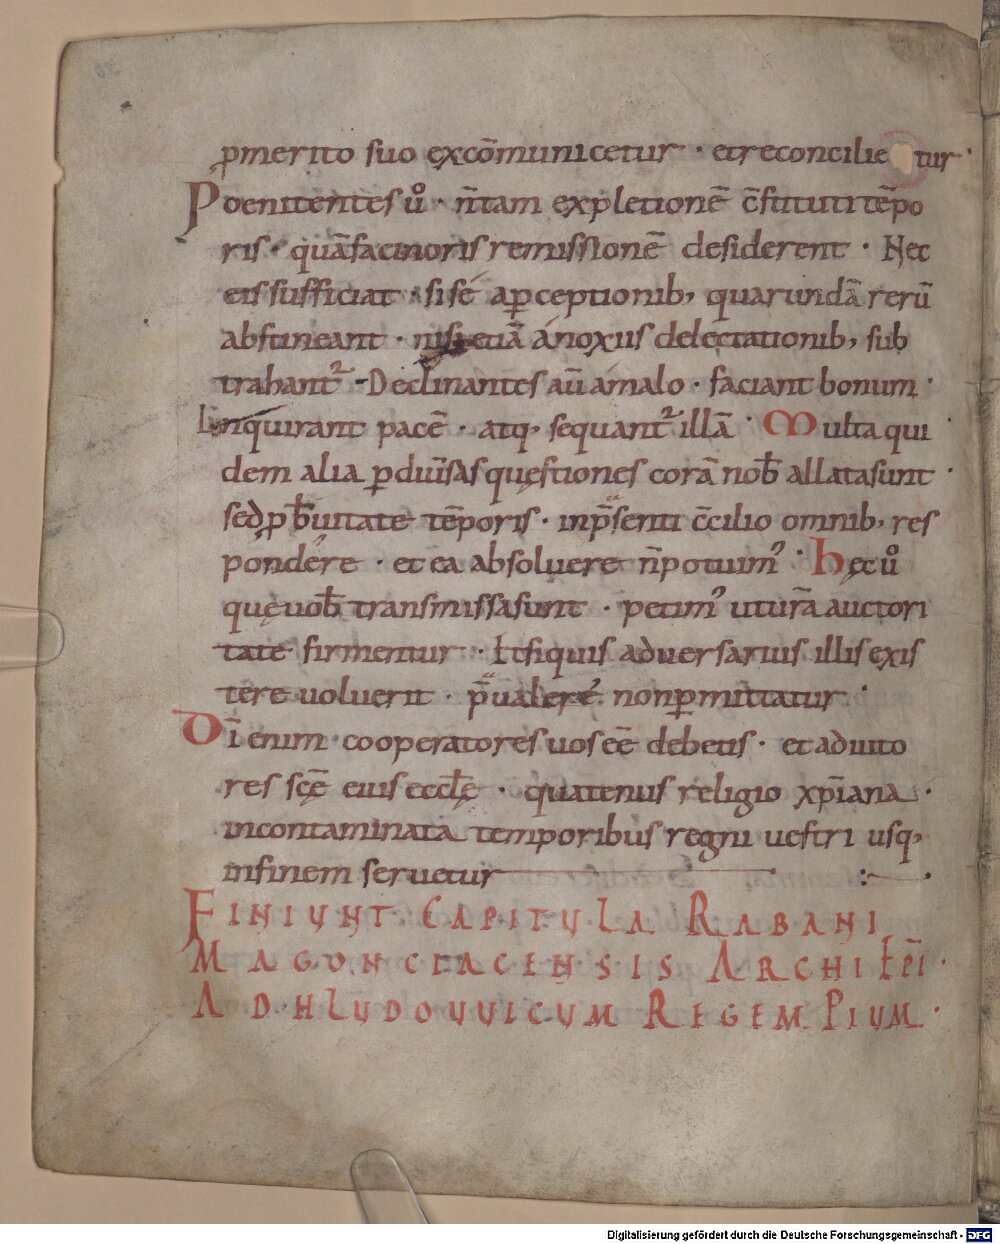 ꝓmerito suo excōmunicetur · et reconcilietur ·
Poenitentes ů · n̄ tam expletionē c̄stituti tēpo
ris · quā facinoris remissionē desiderent · Nec
eis sufficiat si sé a ꝑceptionib, quarundā rerū
abstineant · nisi etiā á noxiis delectationib, sub
trahant᷑ · Declinantes aū a malo · faciant bonum ·
Inquirant pacē · atq, sequant᷑ illā · Multa qui
dem alia ꝑ diūsas quęstiones corā nob̄ allata sunt ·
sed ꝓ b̄uitate tēporis · in p̄senti c̄cilio omnib, res
pondére · et ea absoluere n̄ potuimꝰ · hęc ů
quę uob̄ transmissa sunt · petimꝰ ut urā auctori
tate firmentur · Et si quis aduersarius illis exis
tere uoluerit · p̄ualere non ꝑmittatur ·
Dī enim cooperatores uos eē debetis · et adiuto
res scę̄ eius eccłę · quatenus religio xp̄iana ·
incontaminata temporibus regni uestri usq,
in finem seruetur
FINIUNT CAPITULA RABANI
MAGONCIACENSIS ARCHIEP̄I ·
AD HLUDOUUICUM REGEM PIUM ·
Digitalisierung gefördert durch die Deutsche Forschungsgemeinschaft - DFG